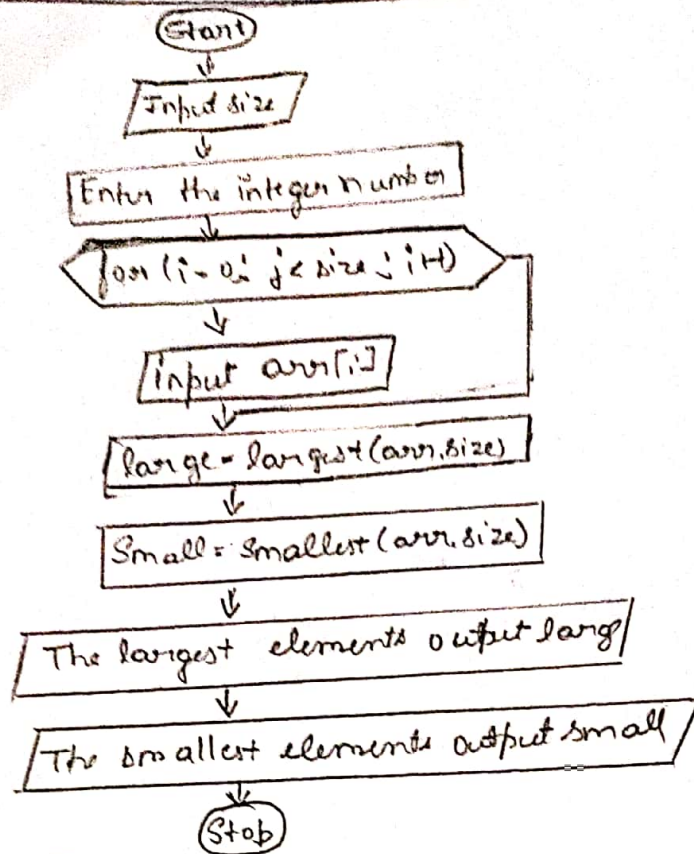 Start
Input size
Enter the integer number
for (i=0; j<size; i++)
input arr[i]
large = largest(arr,size)
Small = Smallest(arr,size)
The largest elements output larg
The smallest elements output small
Stop